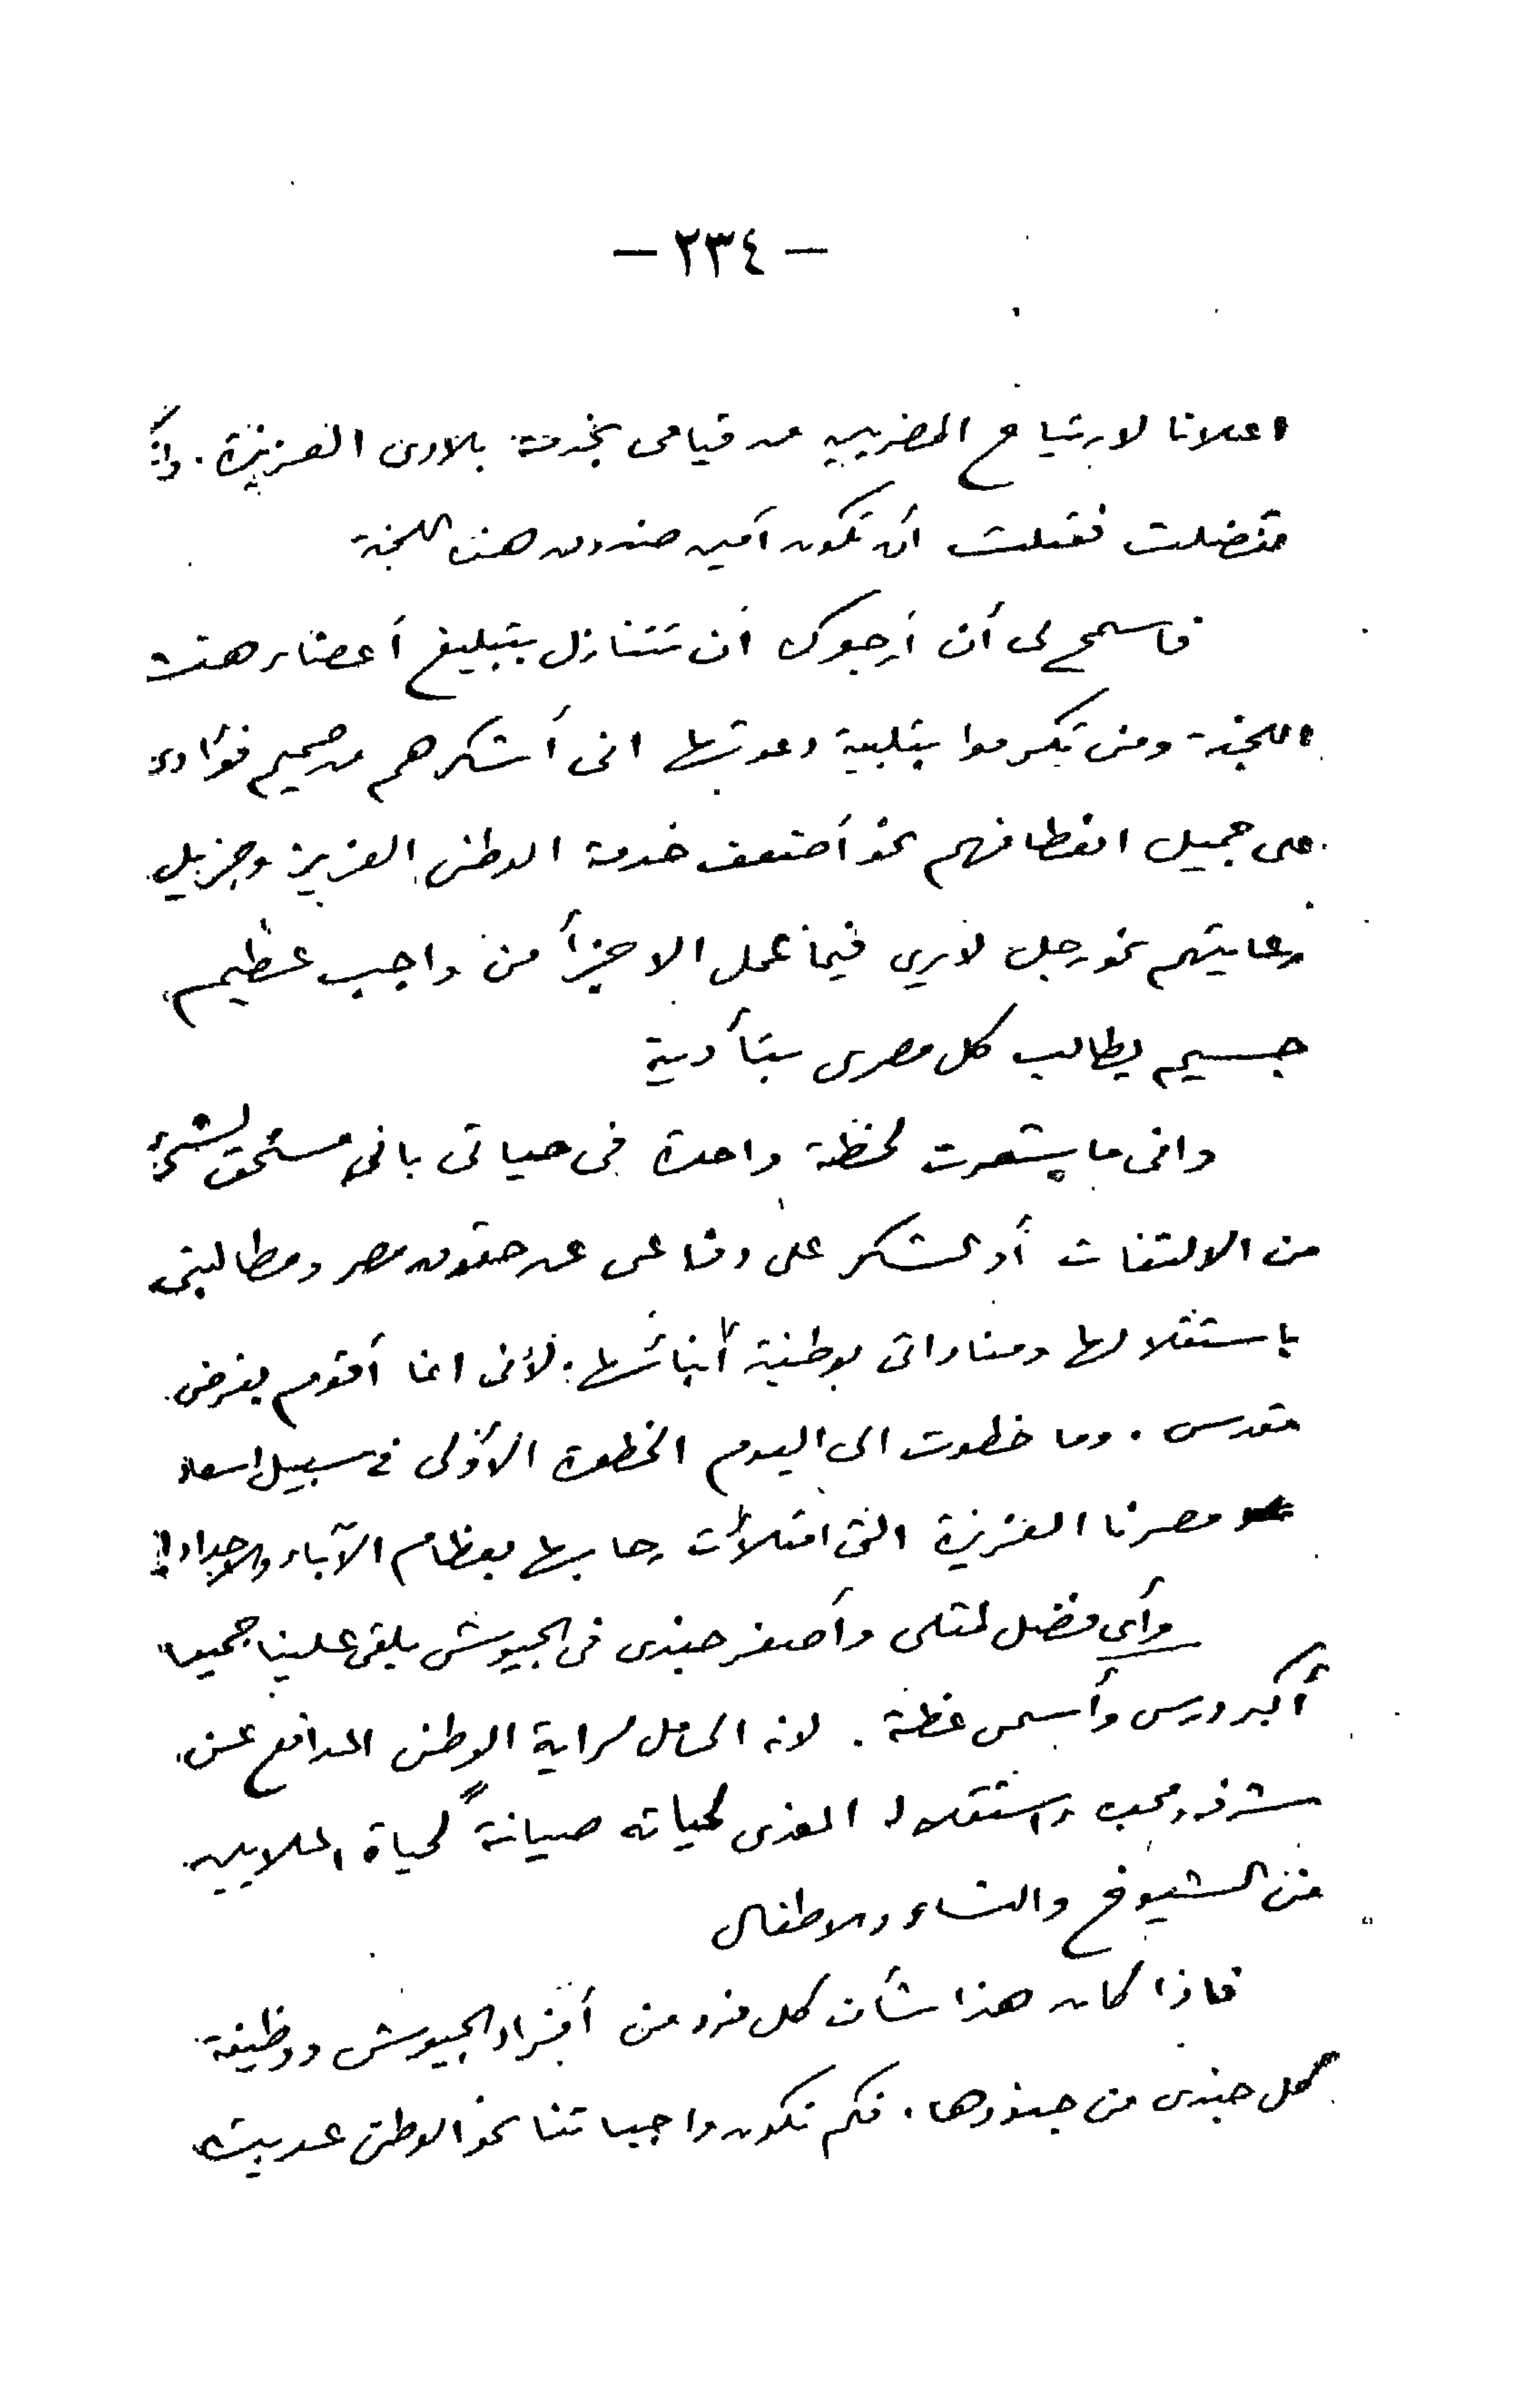 — ٢٣٤ —
اعلانا لارتياح المصريين من قيامى بخدمة بلادى العزيزة . وانك
تفضلت فقبلت أن تكون أمين صندوق هذه اللجنة
فاسمح لى أن أرجوك أن تتنازل بتبليغ أعضاء هذه
اللجنة ومن تكرموا بتلبية دعوتها انى أشكرهم من صميم فؤادى
على جميل انعطافهم نحو أضعف خدمة الوطن العزيز وجزيل
رعايتهم نحو رجل لا يرى فيما عمل الا جزأ من واجب عظيم
جسيم يطالب كل مصرى بتأدية
وانى ما شعرت لحظة واحدة فى حياتى بانى مستحق لشئ
من الالتفات أو الشكر على دفاعى عن حقوق مصر ومطالبتى
باستقلالها ومناداتى بوطنية أبنائها . لأنى انما أقوم بفرض
مقدس . وما خطوت الى اليوم الخطوة الأولى فى سبيل اسعاد
مصرنا العزيزة التى امتلأت رحابها بعظام الآباء والاجداد !
وأى فضل لمثلى وأصغر جندى فى الجيوش يلقى علينا جميعا
أكبر درس وأسمى عظة . لانه الحامل لراية الوطن المدافع عن
شرفه ومجده واستقلاله المفدى لحياته صيانةً لحياة الملايين
من الشيوخ والنساء والاطفال
فاذا كان هذا شأن كل فرد من أفراد الجيوش ووظيفة
كل جندى من جنودها . فكم تكون واجباتنا نحو الوطن عديدة